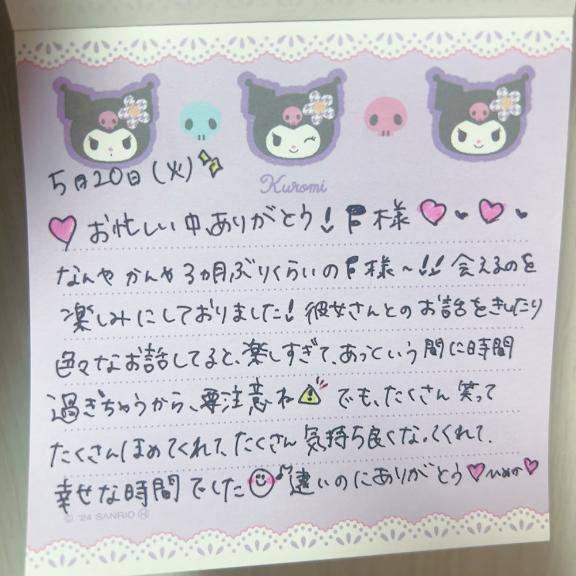 5月20日(火)
Kuromi
お忙しい中、ありがとう！F様
なんやかんや3ヵ月ぶりくらいのF様〜!! 会えるのを
楽しみにしておりました！彼女さんとのお話をきいたり
色々なお話してると、楽しすぎて、あっという間に時間
過ぎちゃうから、要注意ね でも、たくさん笑って
たくさんほめてくれて、たくさん気持ち良くなってくれて、
幸せな時間でした 遠いのにありがとう
© '24 SANRIO